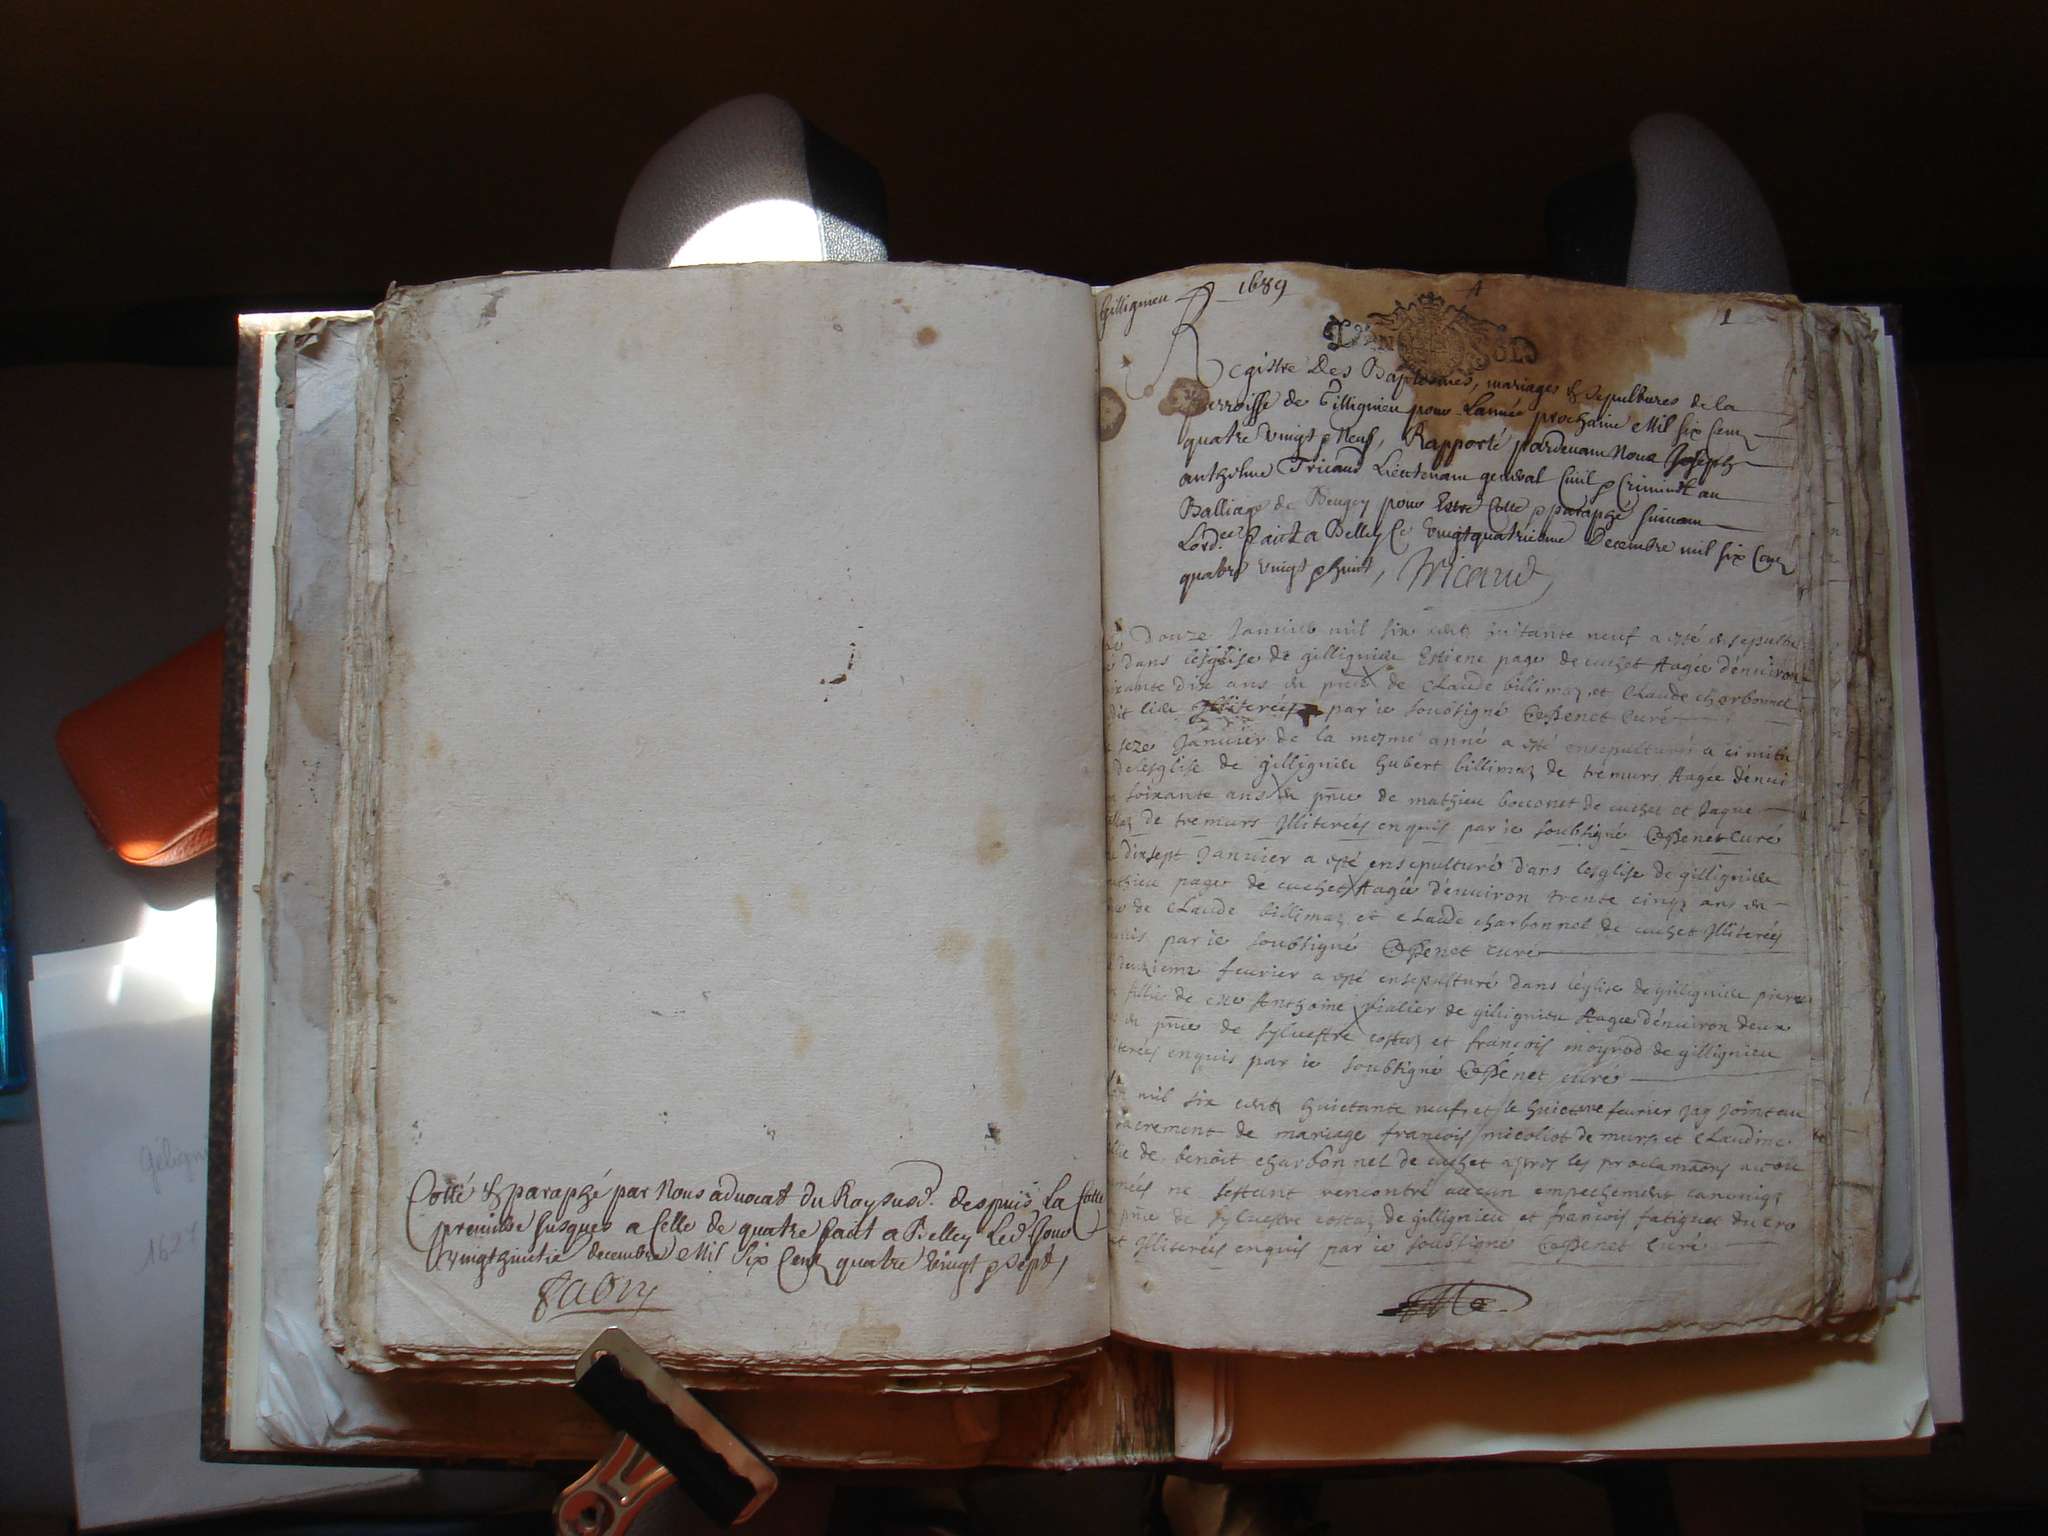 Cotté & paraphé par Nous advocat du Roy susd. despuis La Cotte
premiere Jusques a Celle de quatre fait a Belley Led. Jour
vingthuitie decembre Mil Six Cent quatre vingt & Sept,
Fabry
Gillignieu 1689
1
Registre Des Baptesmes, mariages & sepultures de la
parroisse de Gillignieu pour Lannée prochaine Mil six Cens
quatre vingt & Neuf, Rapporté pardevant Nous Joseph
anthelme Tricaud Lieutenant general Civil & Criminel au
Balliage de Beugey pour Estre Cotté & paraphé suivant
Lord.ce fait a Belley Ce vingtquatrieme Decembre mil six Cens
quatre vingt & huit, Tricaud
douze Janvier mil six cents huitante neuf a esté ensepulturé
dans lesglise de gillignieu Estiene page de cuchet Aagée d'enuiron
dix ans en pñce de Claude billimaz et Claude charbonnel
dit lieu Illiterées par ie soubsigné Cossenet Curé
seze Janvier de la mesme anné a esté ensepulturé a cimiti
de lesglise de gillignieu hubert billimaz de tremurs Aagée d'enui
soixante ans en pñce de mathieu boconet de cuchet et Jaque
de tremurs Illiterées enquis par ie soubsigné Cossenet Curé
dixsept Janvier a esté ensepulturé dans lesglise de gillignieu
page de cuchet Aagée d'enuiron trente cinq ans en
de Claude billimaz et Claude charbonnel de cuchet Illiterées
par ie soubsigné Cossenet Curé
feurier a esté ensepulturé dans léglise de gillignieu pierre
fillie de Anthoine vialier de gillignieu Aagée d'enuiron deux
en pñce de syluestre costaz et francois moyrod de gillignieu
enquis par ie soubsigné Cossenet curé
mil six cents huictante neuf et le huictiene feurier Jay Joint au
sacrement de mariage francois micoliot de murs et Claudine
de benoit charbonnel de cuchet aprés les proclamaons
ne sestant rencontré aucun empechement canoniq
pñce de syluestre costaz de gillignieu et francois fatiguet du cro
Illiterées enquis par ie soubsigné Cossenet Curé